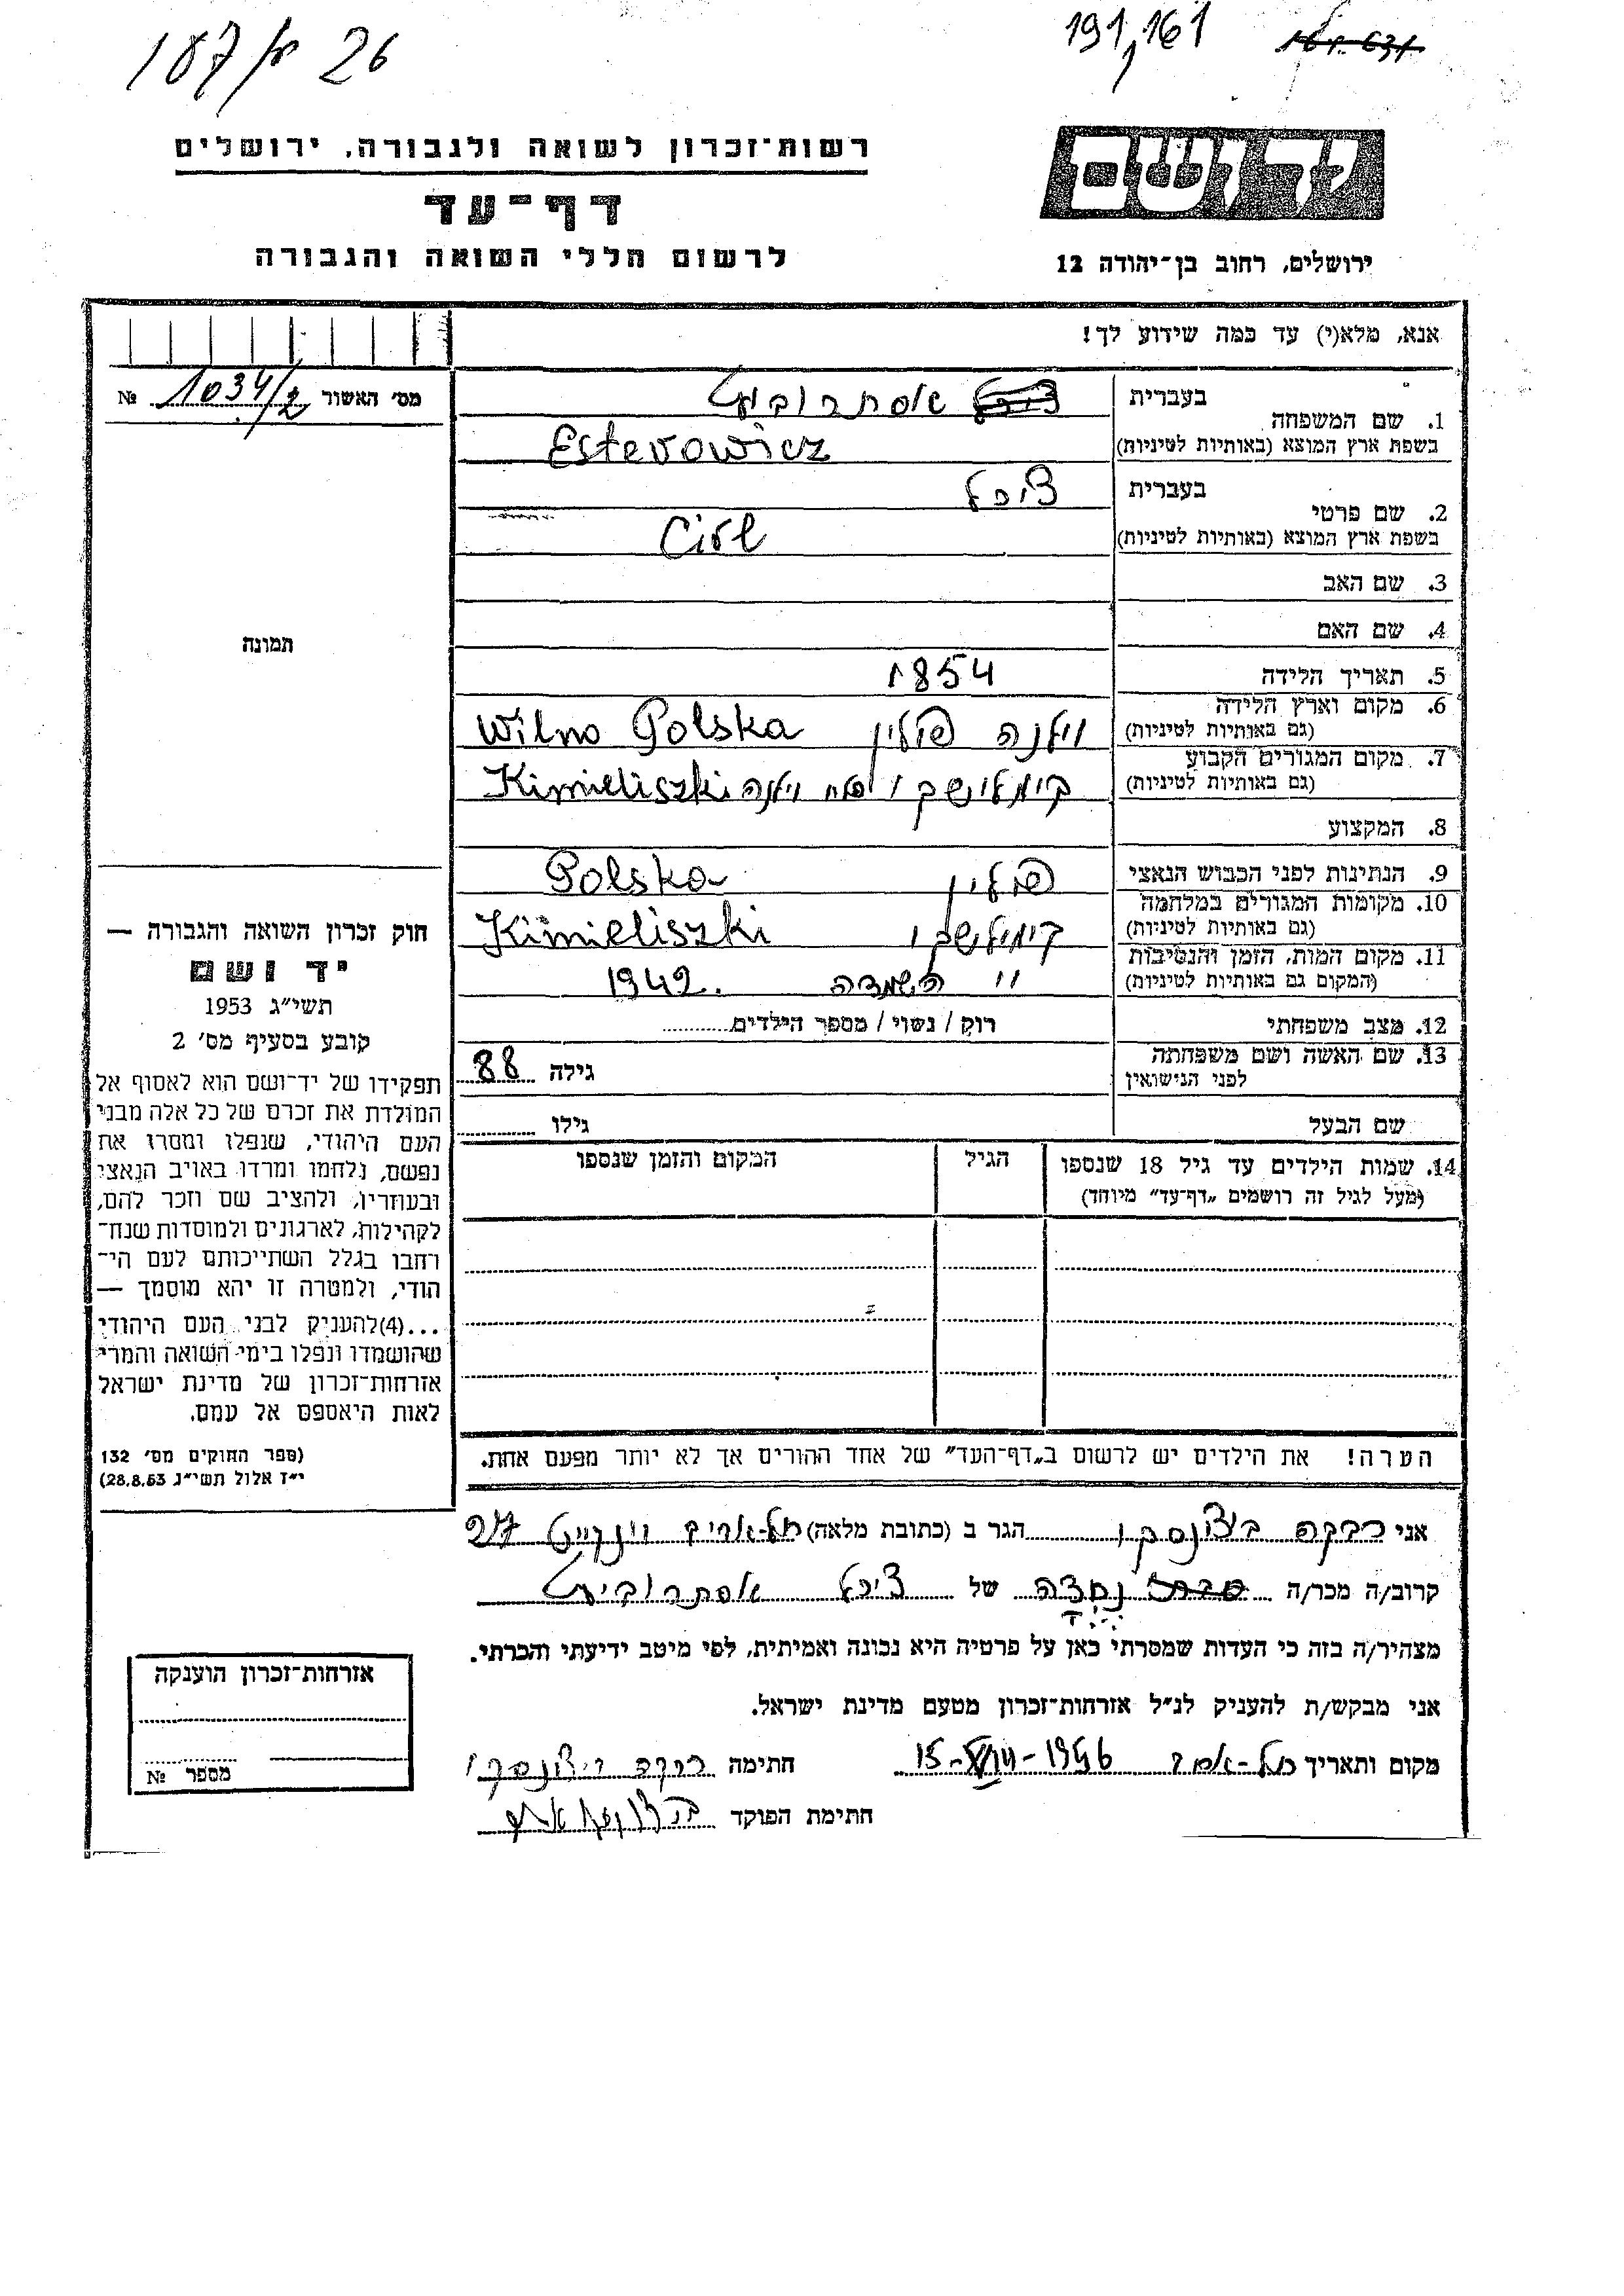 187/ 26
191,161
רשות־זכרון לשואה ולגבורה, ירושלים
דף־עד
לרשום חללי השואה והגבורה
יד ושם
ירושלים, רחוב בן־יהודה 12
אנא, מלא(י) עד כמה שידוע לך!
מס׳ האשור 1034/2 №
1. שם המשפחה
בעברית אסתרוביץ
בשפת ארץ המוצא (באותיות לטיניות) Esterowicz
2. שם פרטי
בעברית צירל
בשפת ארץ המוצא (באותיות לטיניות) Cirl
3. שם האב
4. שם האם
5. תאריך הלידה 1854
6. מקום וארץ הלידה
(גם באותיות לטיניות) וילנה פולין Wilno Polska
7. מקום המגורים הקבוע
(גם באותיות לטיניות) קימלישקי וילנה Kimieliszki
8. המקצוע
9. הנתינות לפני הכבוש הנאצי פולין Polska
10. מקומות המגורים במלחמה
(גם באותיות לטיניות) קימלישקי Kimieliszki
11. מקום המות, הזמן והנסיבות
(המקום גם באותיות לטיניות) " השמדה 1942.
12. מצב משפחתי רוק / נשוי / מספר הילדים
13. שם האשה ושם משפחתה
לפני הנישואין גילה 88
שם הבעל גילו
14. שמות הילדים עד גיל 18 שנספו
(מעל לגיל זה רושמים „דף־עד” מיוחד)
הגיל
המקום והזמן שנספו
הערה! את הילדים יש לרשום ב„דף־העד” של אחד ההורים אך לא יותר מפעם אחת.
תמונה
חוק זכרון השואה והגבורה —
יד ושם
תשי״ג 1953
קובע בסעיף מס׳ 2
תפקידו של יד־ושם הוא לאסוף אל
המולדת את זכרם של כל אלה מבני
העם היהודי, שנפלו ומסרו את
נפשם, נלחמו ומרדו באויב הנאצי
ובעוזריו, ולהציב שם וזכר להם,
לקהילות, לארגונים ולמוסדות שנח־
רחבו בגלל השתייכותם לעם הי־
הודי, ולמטרה זו יהא מוסמך —
...(4)להעניק לבני העם היהודי
שהושמדו ונפלו בימי השואה והמרי
אזרחות־זכרון של מדינת ישראל
לאות היאספם אל עמם.
(ספר החוקים מס׳ 132
י״ז אלול תשי״ג 28.8.53)
אני רבקה הגר ב (כתובת מלאה) תל-אביב 27
קרוב/ה מכר/ה נכדה של צירל אסתרוביץ
מצהיר/ה בזה כי העדות שמסרתי כאן על פרטיה היא נכונה ואמיתית, לפי מיטב ידיעתי והכרתי.
אני מבקש/ת להעניק לנ״ל אזרחות־זכרון מטעם מדינת ישראל.
מקום ותאריך תל-אביב 15-VIII-1956 חתימה רבקה
חתימת הפוקד
אזרחות־זכרון הוענקה
מספר №